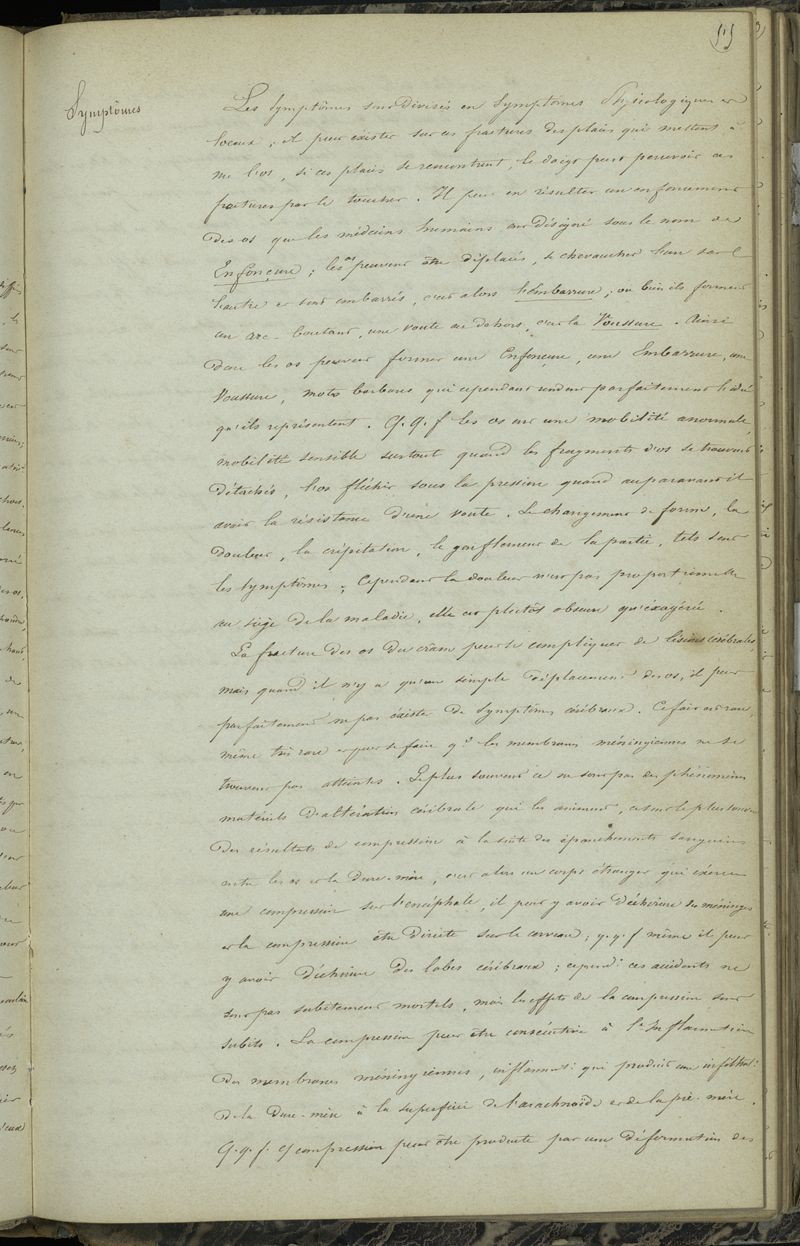 Symptômes
Les symptômes sont divisés en symptômes Physiologiques et
locaux ; il peut exister sur ces fractures des plaies qui mettent à
nu l'os, si ces plaies se rencontrent, le doigt peut percevoir ces
fractures par le toucher. Il peut en résulter un enfoncement
des os que les médecins humains ont désigné sous le nom de
Enfonçure ; les os peuvent être déplacés, se chevaucher l'un sur l'
l'autre et sont embarrés, c'est alors l'Embarrure ; ou bien ils forment
un arc-boutant, une voute au dehors, c'est la Voussure. Ainsi
donc les os peuvent former une Enfonçure, une Embarrure, une
Voussure, mots barbares qui cependant rendent parfaitement l'idée
qu'ils représentent. Q.q.f les os ont une mobilité anormale,
mobilité sensible surtout quand les fragments d'os se trouvent
détachés, l'os fléchit sous la pression quand auparavant il
avait la résistance d'une voute. Le changement de forme, la
douleur, la crépitation, le gonflement de la partie, tels sont
les symptômes ; Cependant la douleur n'est pas proportionnelle
au siège de la maladie, elle est plutôt obscure qu'éxagérée.
La fracture des os du crâne peut se compliquer de lésions cérébrales,
mais quand il n'y a qu'un simple déplacement des os, il peut
parfaitement ne pas éxister de symptômes cérébraux. Ce fait est rare,
même très rare et peut se faire qd les membranes méningiennes ne se
trouvent pas atteintes. Le plus souvent ce ne sont pas des phénomènes
matériels d'altération cérébrale qui les animent, ce sont le plus souvent
des résultats de compression à la suite des épanchements sanguins
entre les os et la Dure-mère, c'est alors un corps étranger qui éxerce
une compression sur l'encéphale, il peut y avoir déchirure des méninges
et la compression être directe sur le cerveau ; q.q.f même il peut
y avoir déchirure des lobes cérébraux ; cependt ces accidents ne
sont pas subitement mortels, mais les effets de la compression sont
subits. La compression peut être consécutive à l'inflammation
des membranes méningiennes, inflammt qui produit une infiltratn
de la Dure-mère à la superficie de l'arachnoïde et de la pie-mère.
Q.q.f. cy compression peut être produite par une déformation des